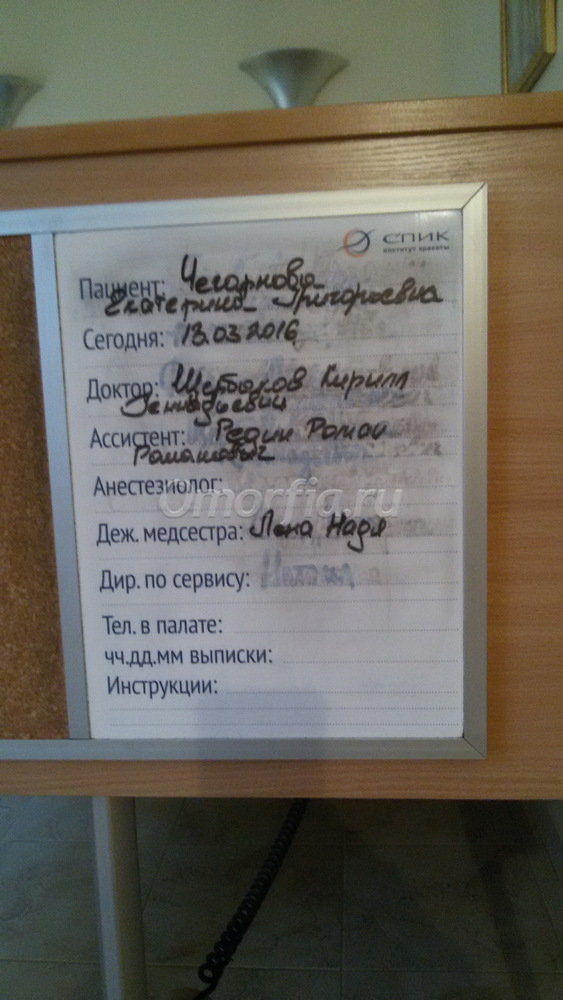 СПИК
институт красоты
Пациент: Чегорнова
Екатерина Григорьевна
Сегодня: 13.03.2016
Доктор: Щербаков Кирилл
Геннадьевич
Ассистент: Редин Роман
Романович
Анестезиолог:
Omorfia.ru
Деж. медсестра: Лена Надя
Дир. по сервису:
Тел. в палате:
чч.дд.мм выписки:
Инструкции: